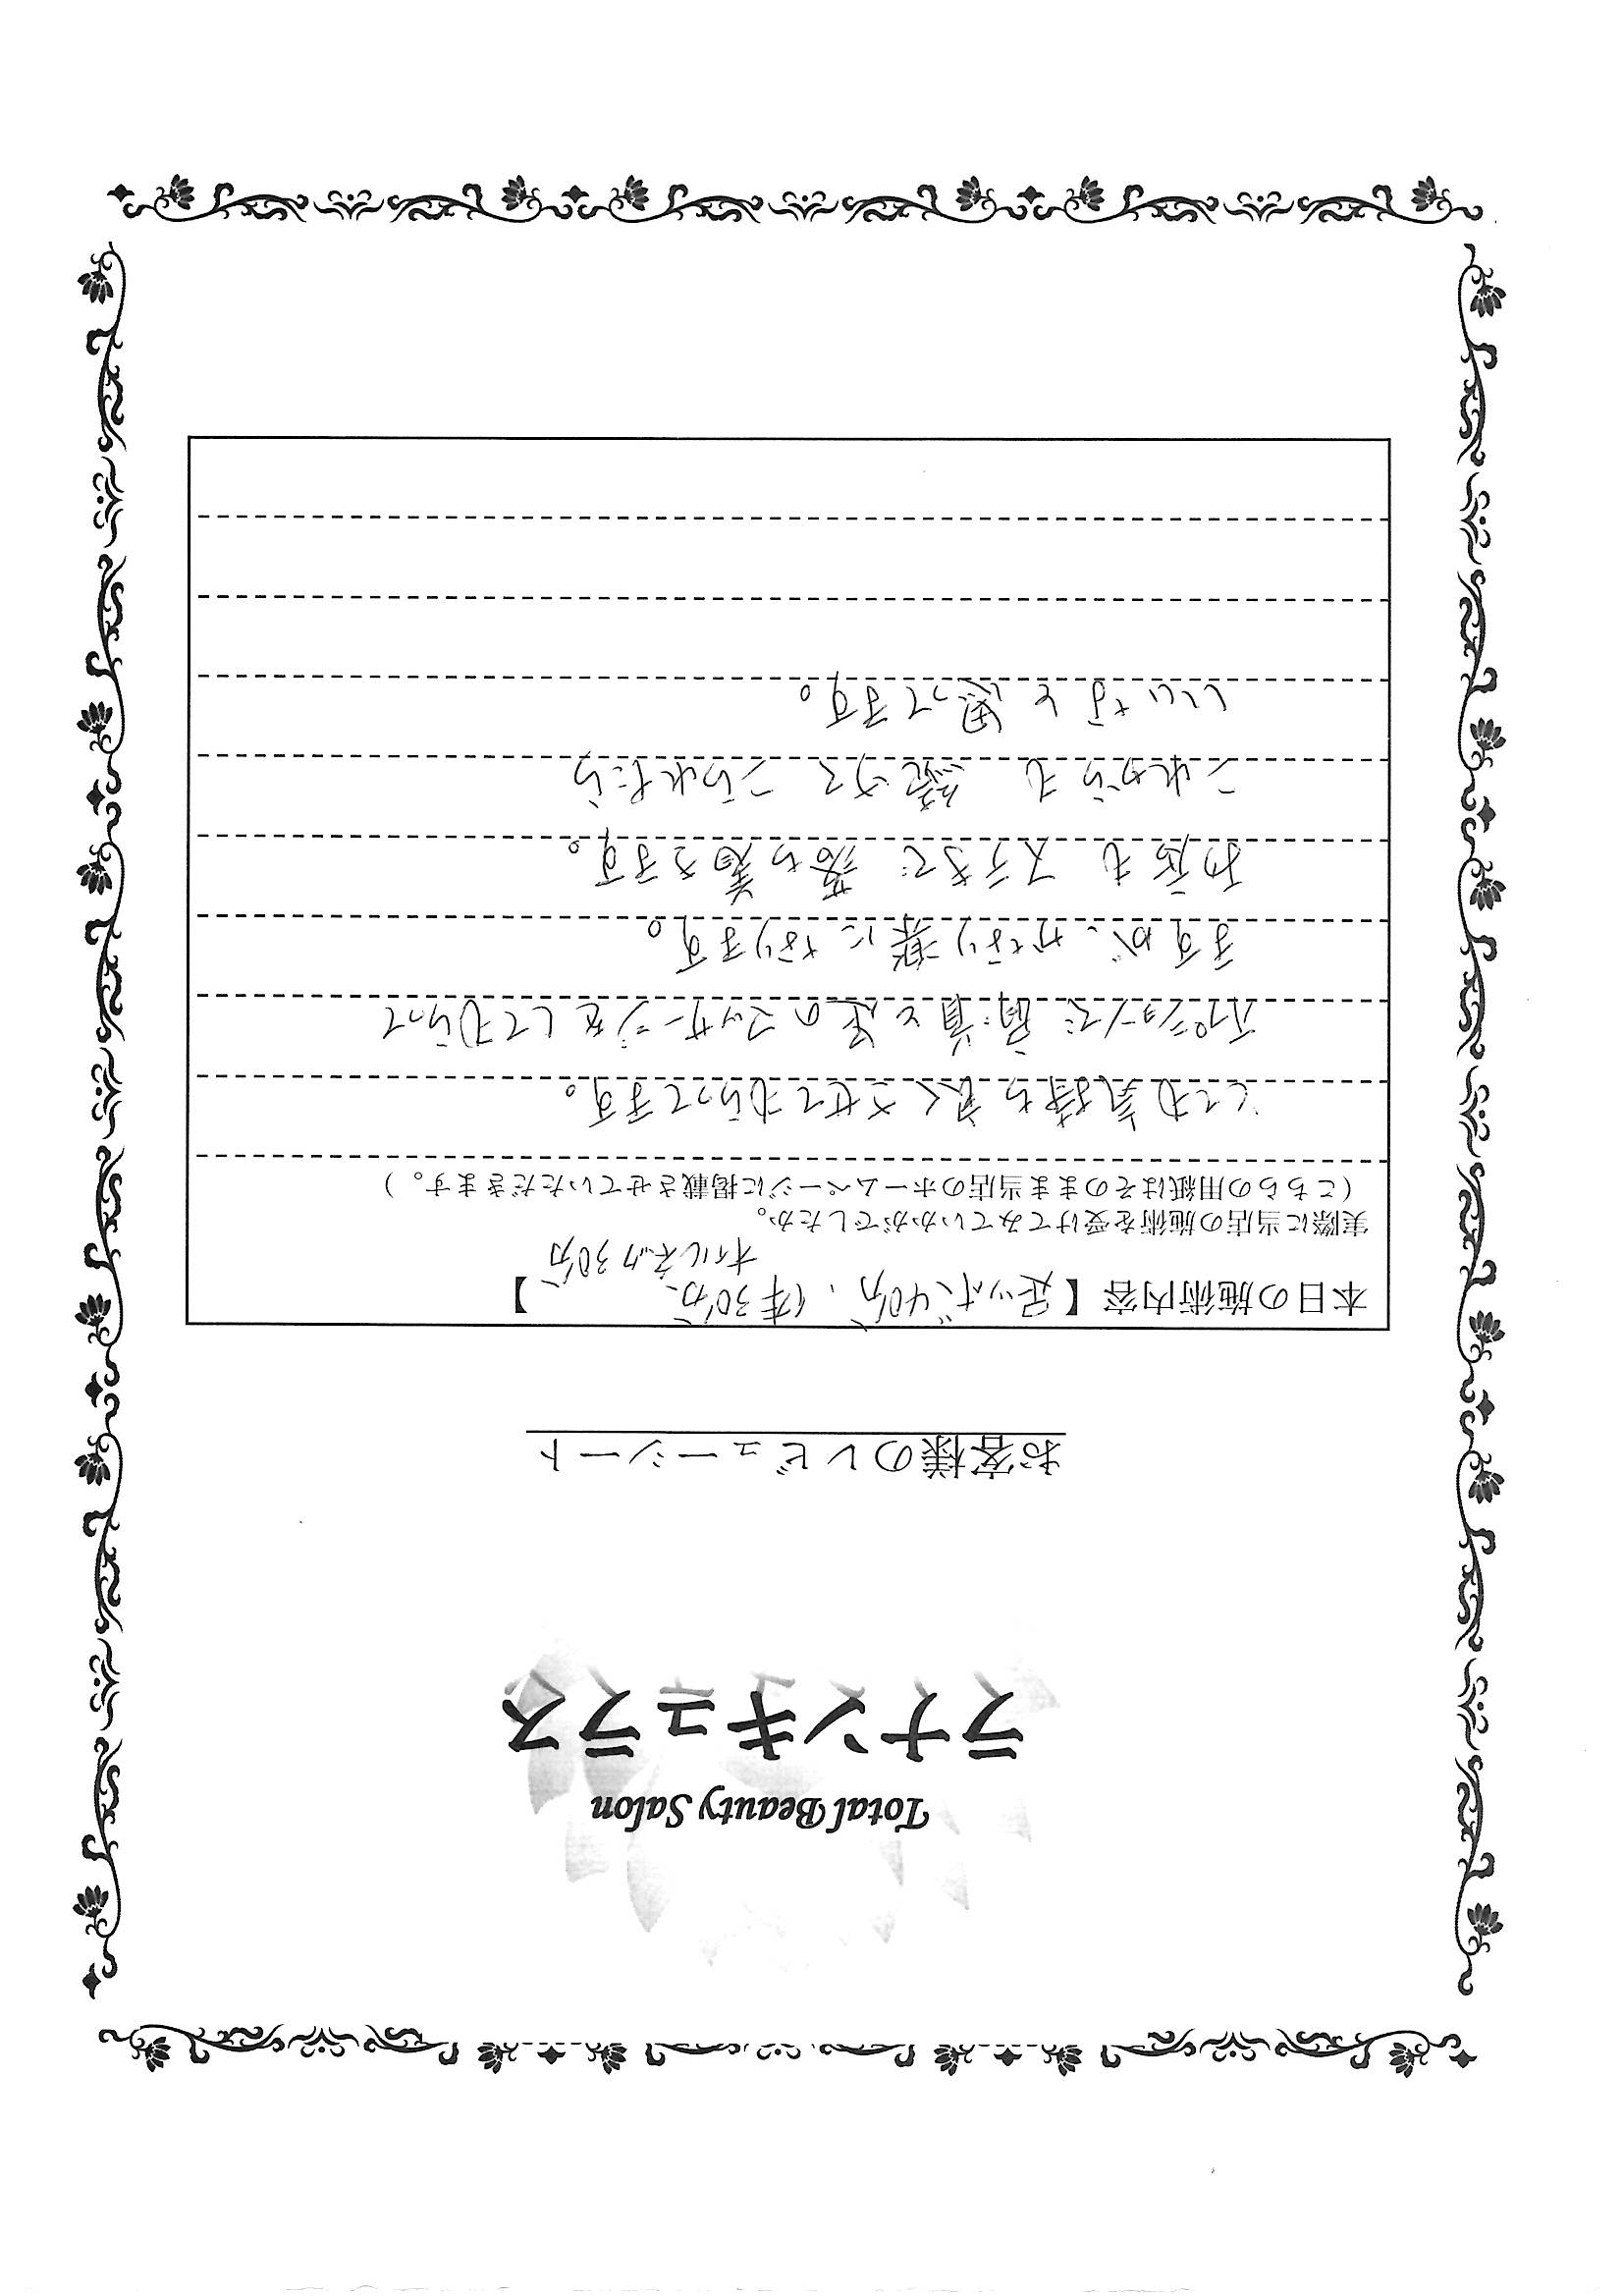 Total Beauty Salon
ラナンキュラス
お客様のレビューシート
本日の施術内容【足ツボ40分、体30分、
オイルネック30分】
実際に当店の施術を受けてみていかがでしたか。
（こちらの用紙はそのまま当店のホームページに掲載させていただきます。）
とても気持ち良くさせてもらってます。
オプションで肩首と足のマッサージをしてもらって
ますが、かなり楽になります。
お店もステキで落ち着きます。
これからも続けてこられたら
いいなと思ってます。